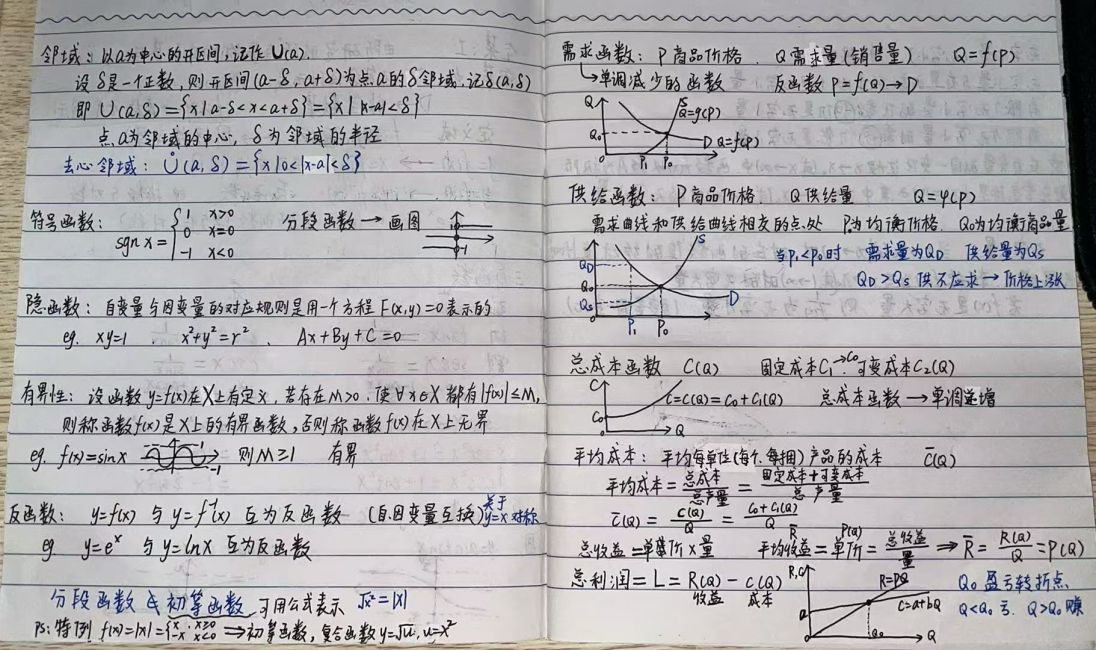 邻域：以a为中心的开区间，记作 U(a).
设δ是一个正数，则开区间(a-δ, a+δ)为点a的δ邻域，记δ(a,δ)
即 U(a,δ)={x|a-δ<x<a+δ}={x||x-a|<δ}
点a为邻域的中心，δ为邻域的半径
去心邻域：Ů(a,δ)={x|0<|x-a|<δ}
符号函数：sgn x={1 x>0
0 x=0
-1 x<0
分段函数→画图
隐函数：自变量与因变量的对应规则是用一个方程 F(x,y)=0表示的
eg. xy=1 . x²+y²=r² . Ax+By+C=0
有界性：设函数y=f(x)在X上有定义，若存在M>0，使∀x∈X都有|f(x)|≤M,
则称函数f(x)是X上的有界函数，否则称函数f(x)在X上无界
eg. f(x)=sinx 1 -1 则M≥1 有界
反函数：y=f(x) 与 y=f⁻¹(x) 互为反函数 (自.因变量互换) 关于y=x对称
eg y=eˣ 与 y=lnx 互为反函数
初等函数 可用公式表示 √x²=|x|
Ps:特例 f(x)=|x|={x, x≥0
-x x<0 ⇒初等函数，复合函数 y=√u, u=x²
需求函数：P商品价格 . Q需求量(销售量) Q=f(P)
↳单调减少的函数 反函数 P=f(Q)→D
Q S Q=φ(P)
Q₀ D Q=f(P)
0 P₁ P₀
供给函数：P商品价格 Q供给量 Q=φ(P)
需求曲线和供给曲线相交的点处 P₀为均衡价格 Q₀为均衡商品量
S 当P₁<P₀时 需求量为QD 供给量为QS
QD QD>QS 供不应求→价格上涨
Q₀
QS D
0 P₁ P₀
总成本函数 C(Q) 固定成本C₁→C₀ 可变成本C₂(Q)
C C=C(Q)=C₀+C₁(Q) 总成本函数→单调递增
C₀
0 Q
平均成本：平均每单位(每个.每捆)产品的成本 C̅(Q)
平均成本=总成本/总产量=固定成本+可变成本/总产量
C̅(Q)=C(Q)/Q=C₀+C₁(Q)/Q
总收益=单价×量 R̅ 平均收益=单价 P(Q)=总收益/量⇒R̅=R(Q)/Q=P(Q)
总利润=L=R(Q)-C(Q)
收益 成本
R,C R=PQ Q₀ 盈亏转折点
a C=a+bQ Q<Q₀ 亏. Q>Q₀ 赚
0 Q₀ Q